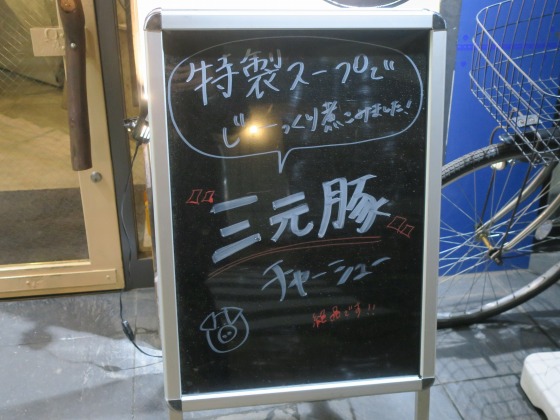 特製スープで
じっくり煮こみました!
"三元豚"
チャーシュー
絶品です!!